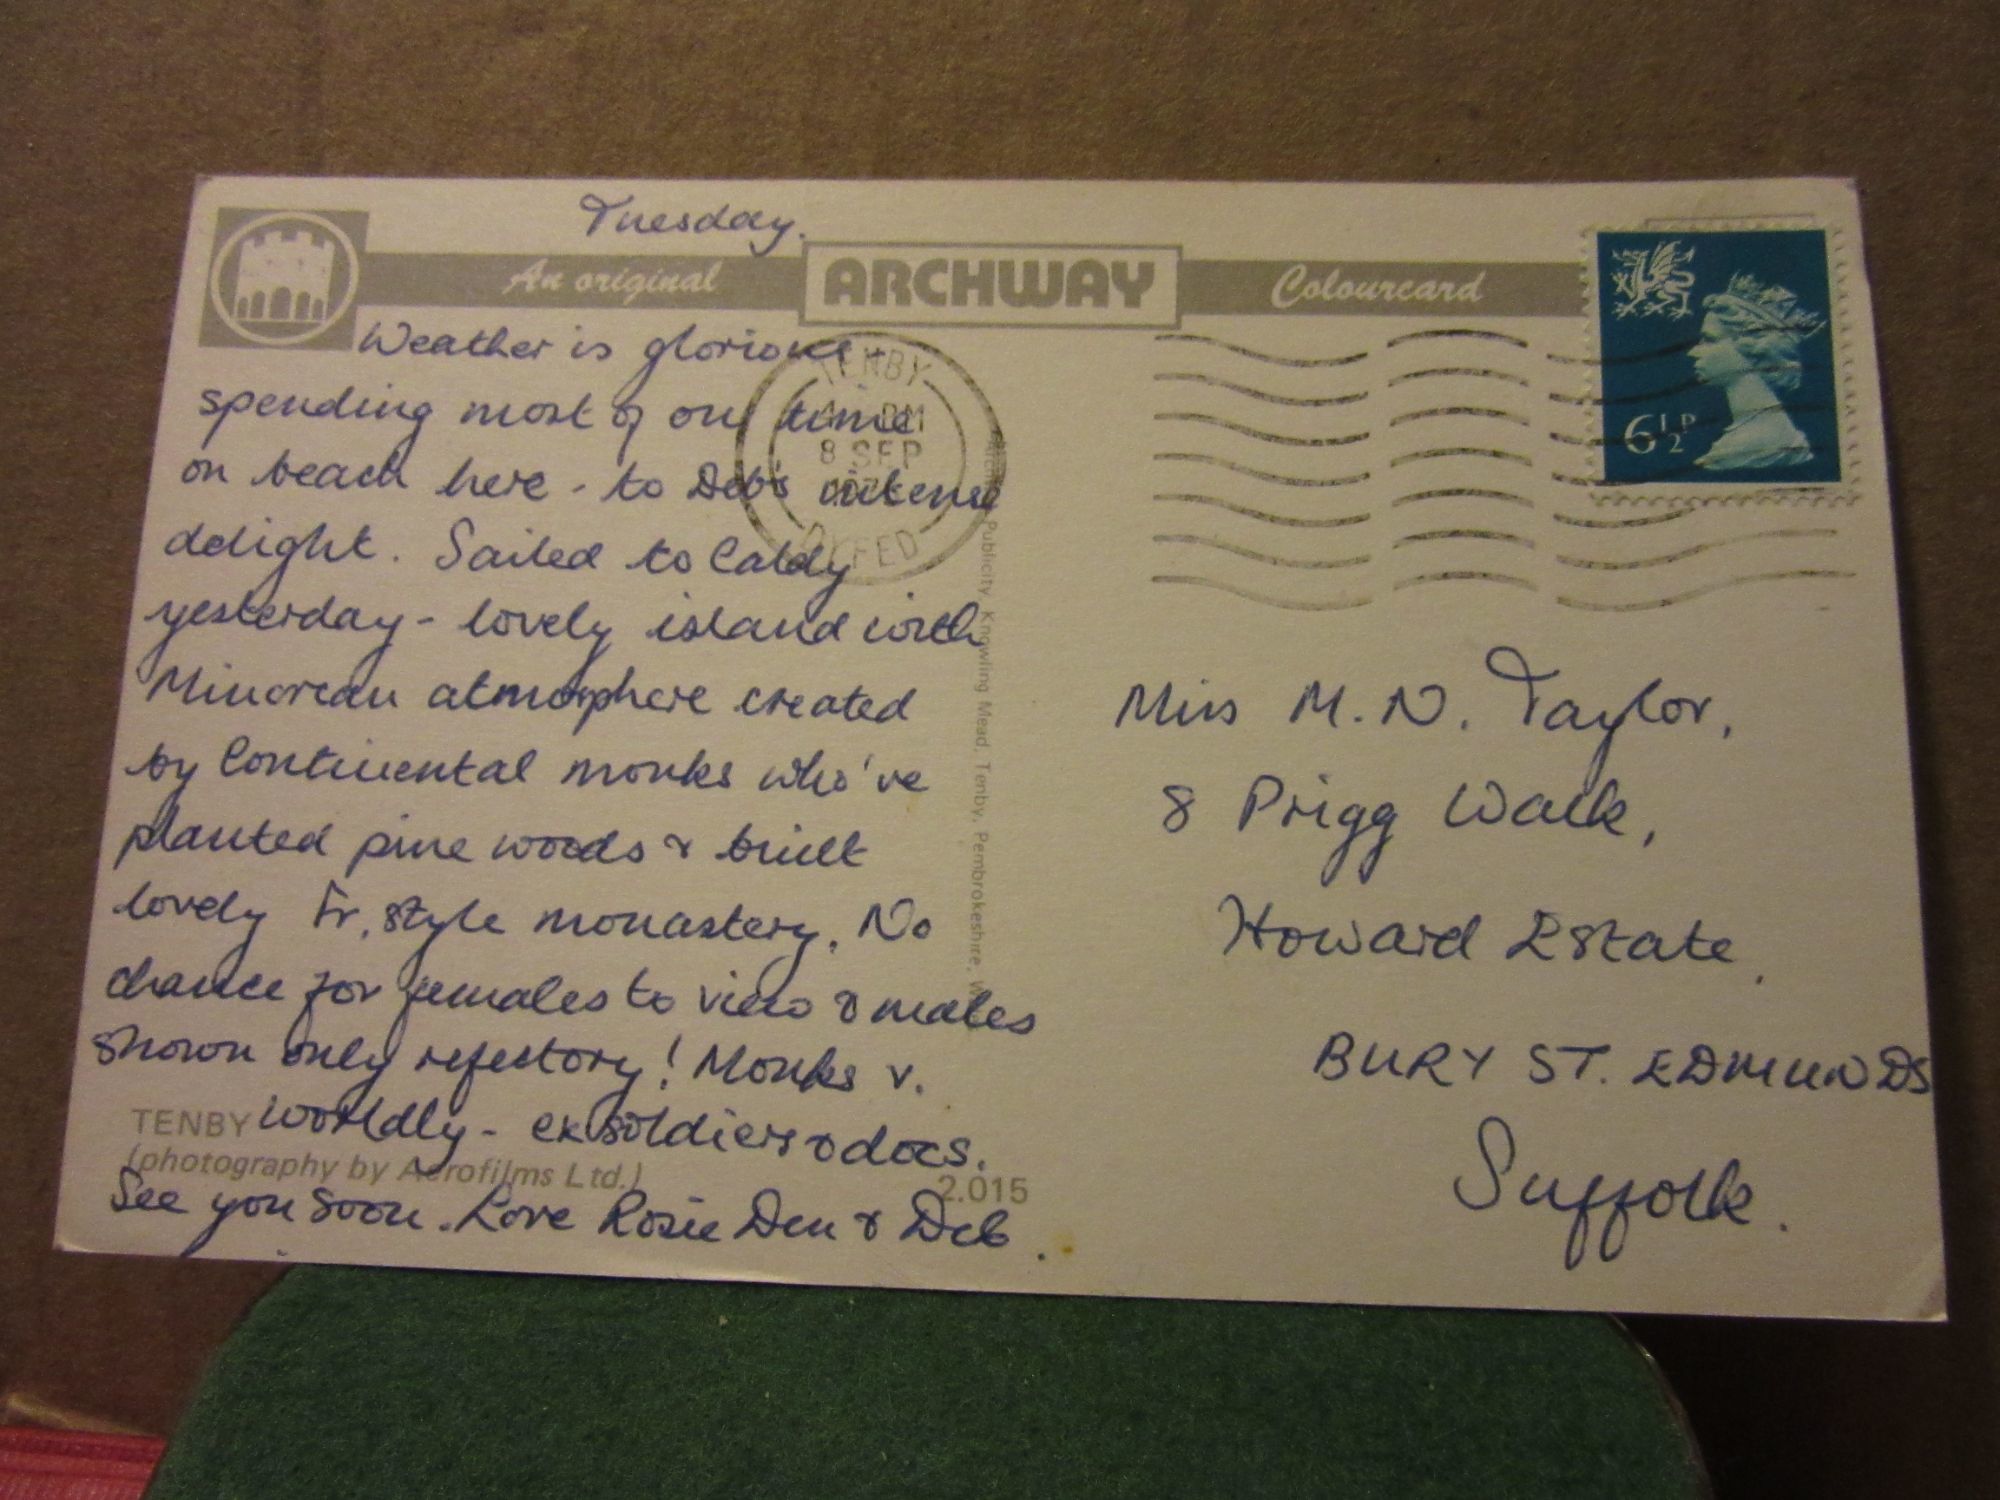 Tuesday.
An original ARCHWAY Colourcard
Weather is glorious -
spending most of our time
on beach here - to Deb's intense
delight. Sailed to Caldy
yesterday - lovely island with
Minorcan atmosphere created
by Continental monks who've
planted pine woods & built
lovely Fr. style monastery. No
chance for females to view & males
shown only refectory! Monks v.
worldly - ex soldiers & docs.
See you soon. Love Rosie Den & Deb.
TENBY
(photography by Aerofilms Ltd.)
2.015
Publicity, Knowling Mead, Tenby, Pembrokeshire,
TENBY
PM
8 SEP
DYFED
6½P
Miss M. N. Taylor,
8 Prigg Walk,
Howard Estate,
BURY ST. EDMUNDS
Suffolk.